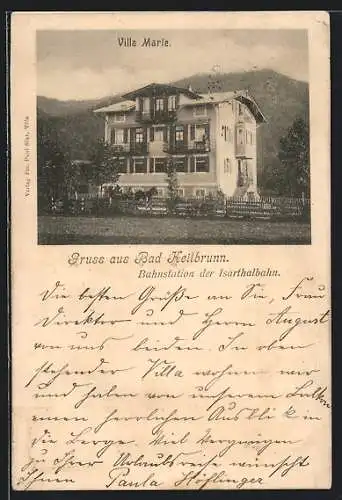 Villa Marie.
Gruss aus Bad Heilbrunn.
Bahnstation der Isarthalbahn.
Die besten Grüße an Sie, Frau
Direktor und Herrn August
von uns beiden. In oben
stehender Villa wohnen wir
und haben von unserem Balkon
einen herrlichen Ausblick in
die Berge. Viel Vergnügen
zu Ihrer Urlaubsreise wünscht
Ihnen Paula Höflinger
Verlag Fra. Paul Tölz